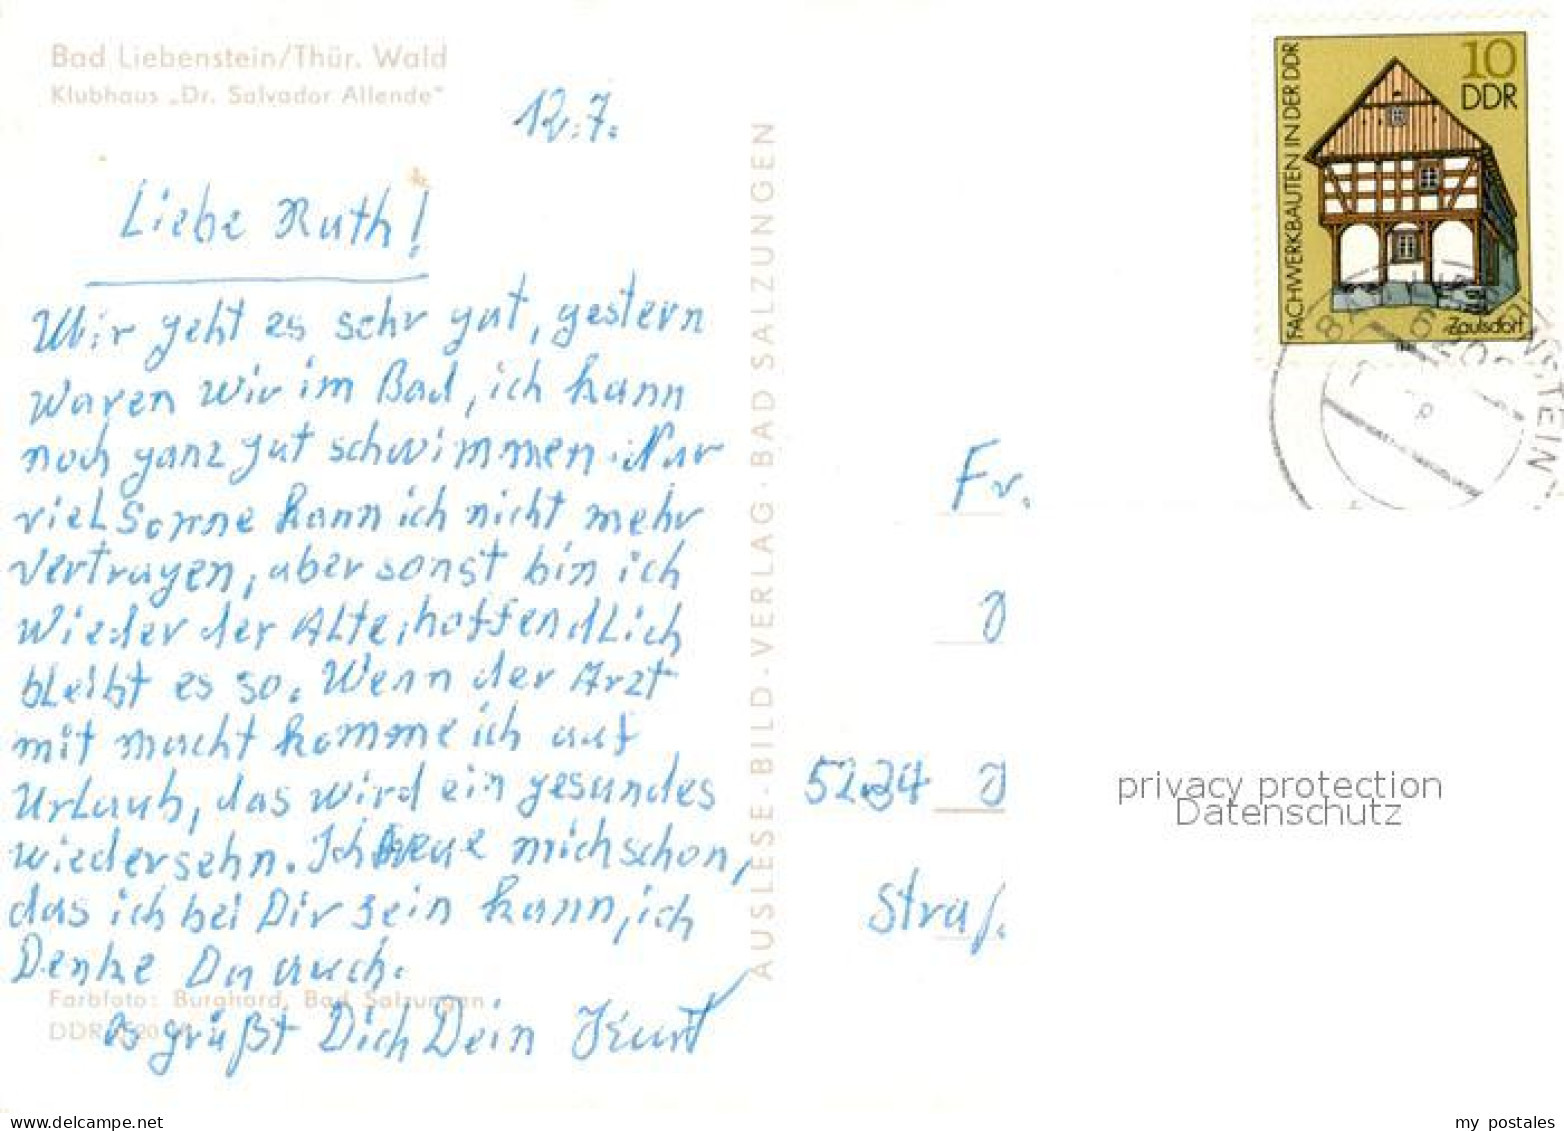 Bad Liebenstein/Thür. Wald
Klubhaus „Dr. Salvador Allende"
12.7.
Liebe Ruth!
Mir geht es sehr gut, gestern
waren wir im Bad, ich kann
noch ganz gut schwimmen. Nur
viel Sonne kann ich nicht mehr
vertragen, aber sonst bin ich
wieder der Alte, hoffendlich
bleibt es so. Wenn der Arzt
mit macht komme ich auf
Urlaub, das wird ein gesundes
wiedersehn. Ich freue mich schon,
das ich bei Dir sein kann, ich
Denke Du auch.
es grüßt Dich Dein Kurt
Farbfoto: Burghard, Bad Salzungen
DDR
AUSLESE-BILD-VERLAG · BAD SALZUNGEN
FACHWERKBAUTEN IN DER DDR
10
DDR
Zaulsdorf
Fr.
J
5234 J
Straß.
privacy protection
Datenschutz
delcampe.net
my_postales